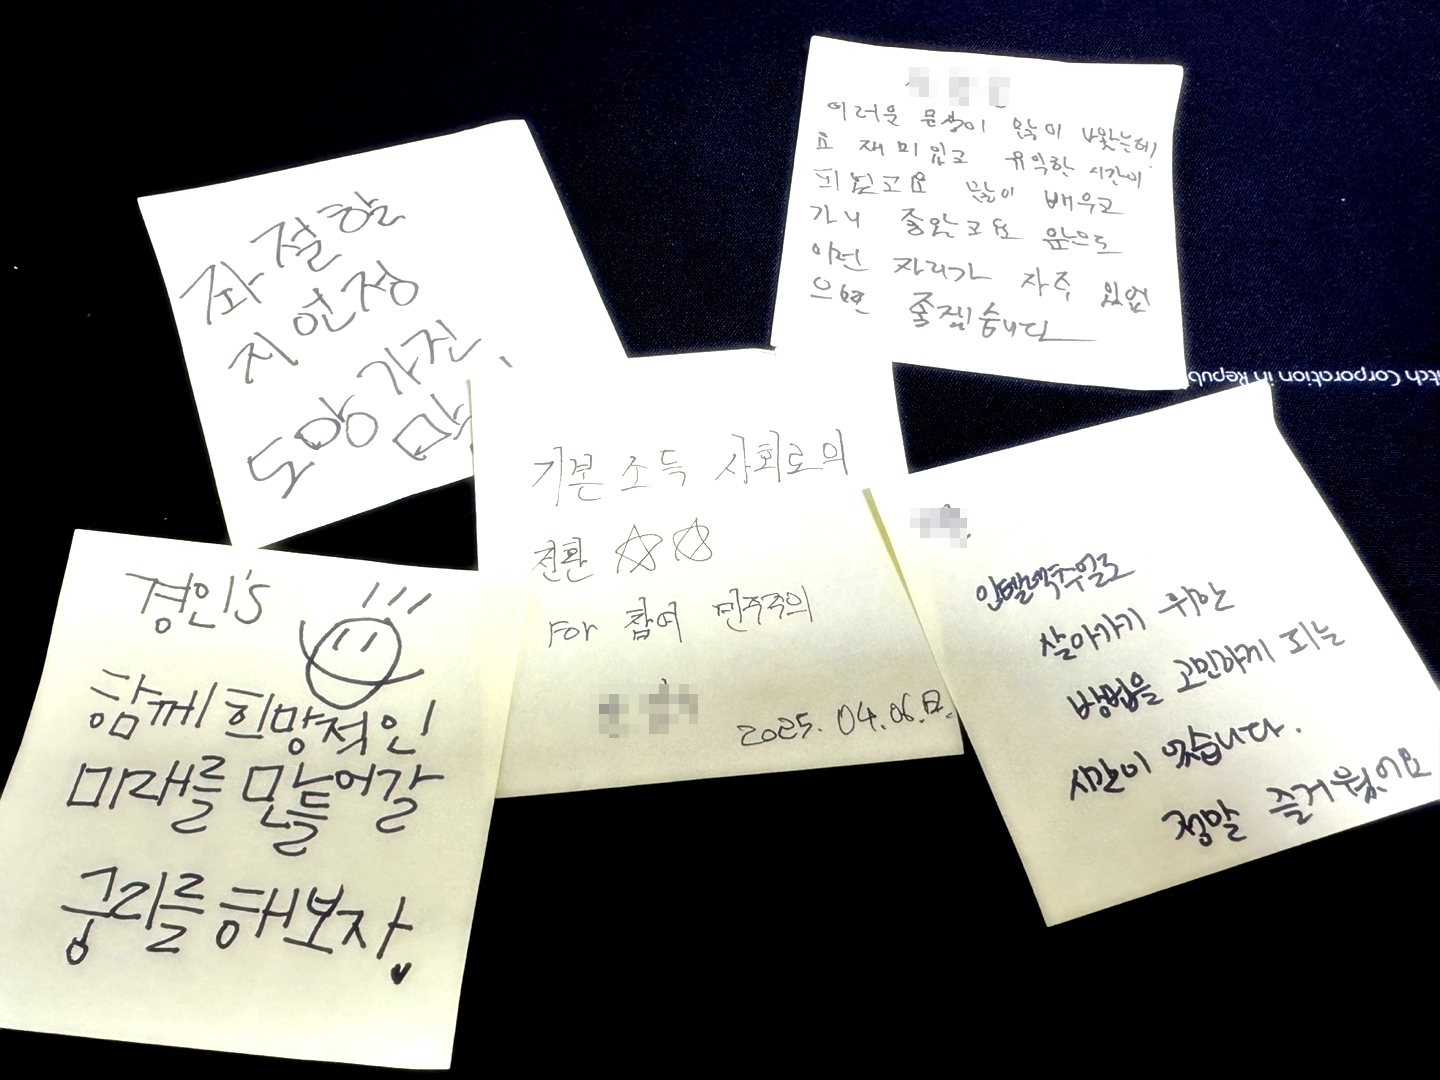 좌절할
지언정
도망가진
어려운 문장이 많이 나왔는데
요 재미있고 유익한 시간이
되었고요 많이 배우고
가니 좋았고요 앞으로
이런 자리가 자주 있었
으면 좋겠습니다
기본소득 사회로의
전환 ☆☆
For 참여 민주주의
2025. 04.06.일.
인텔렉추얼로
살아가기 위한
방법을 고민하게 되는
시간이 었습니다.
정말 즐거웠어요
경인's
함께 희망적인
미래를 만들어갈
궁리를 해보자
tch Corporation in Repub